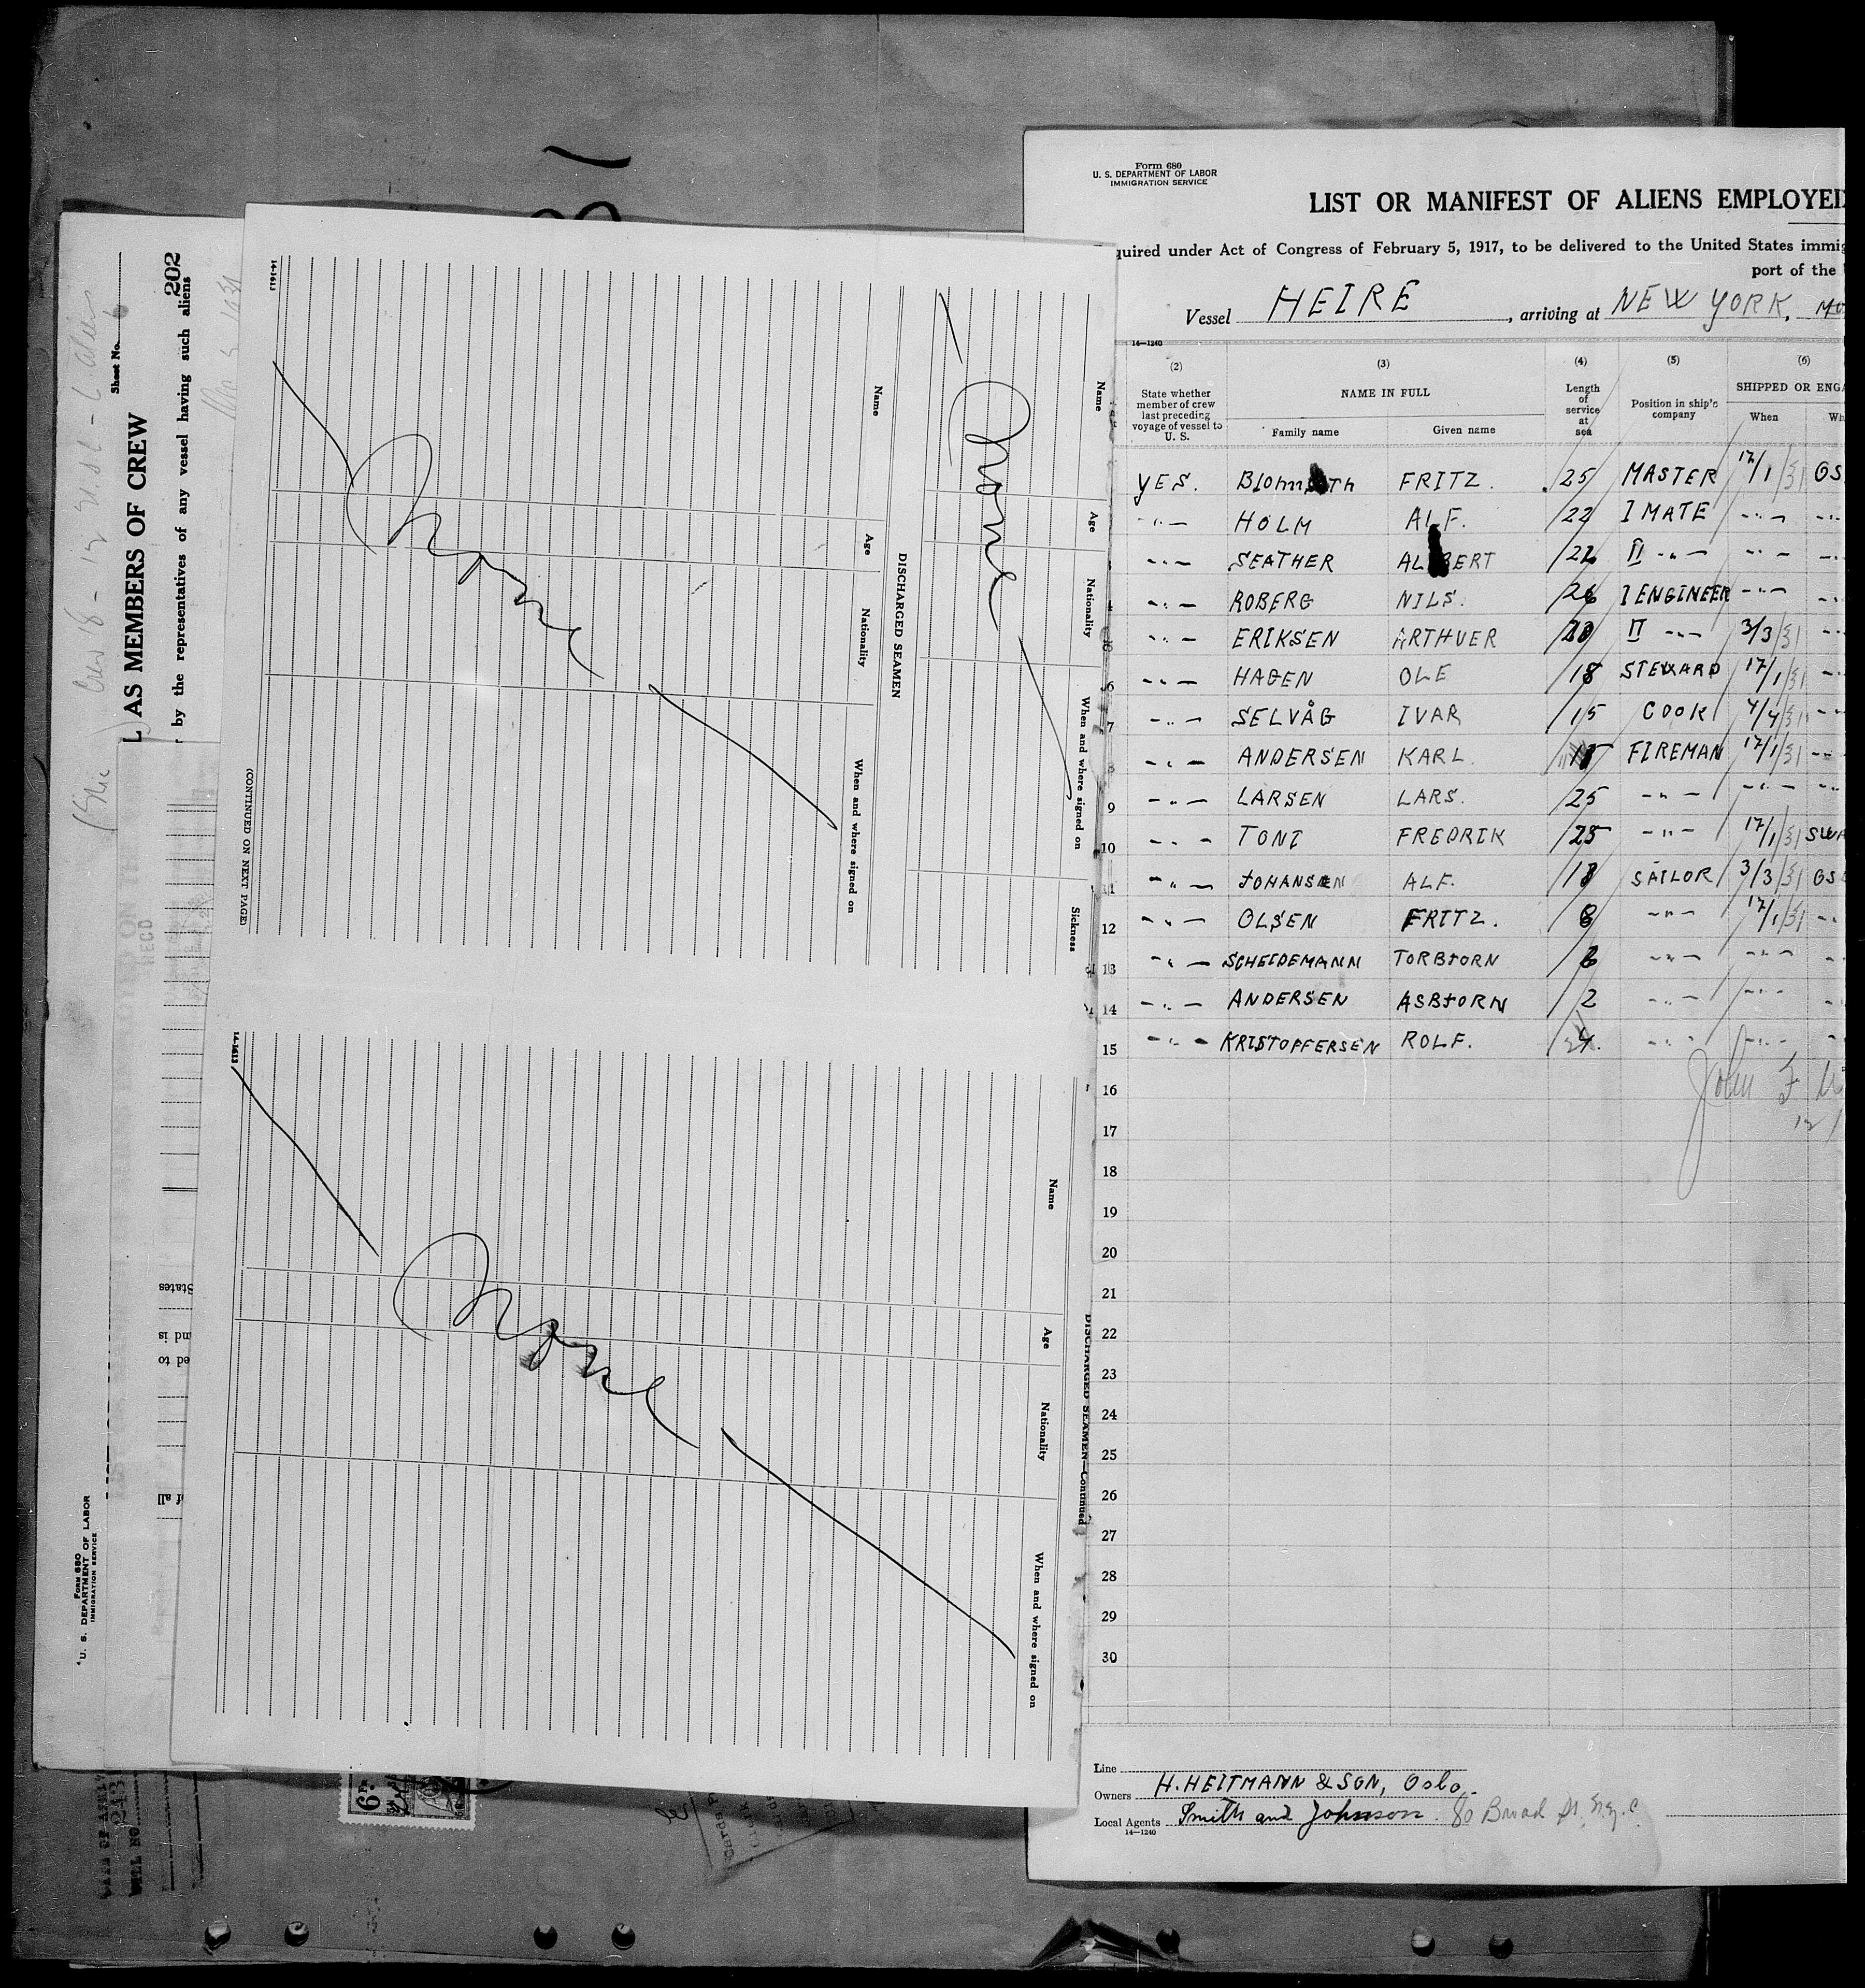 Form 680
U. S. DEPARTMENT OF LABOR
IMMIGRATION SERVICE
LIST OR MANIFEST OF ALIENS EMPLOYED
quired under Act of Congress of February 5, 1917, to be delivered to the United States immig
port of the
Vessel HEIRE, arriving at NEW YORK,
14—1240
(2) (3) (4) (5) (6)
State whether member of crew last preceding voyage of vessel to U. S.
NAME IN FULL
Family name Given name
Length of service at sea
Position in ship's company
SHIPPED OR ENGA
When Wh
YES. FRITZ. 25 MASTER 17/1/31 OS
-"- HOLM ALF. 22 I MATE -"- -"-
-"- SEATHER ALBERT II -"- -"-
-"- ROBERG NILS. I ENGINEER -"-
-"- ERIKSEN ARTHUER II -"- 3/3/31 -"-
6 -"- HAGEN OLE 18 STEWARD 17/1/31 -"-
7 -"- SELVÅG IVAR 15 COOK 4/4/31 -"-
8 -"- ANDERSEN KARL FIREMAN 17/1/31 -"-
9 -"- LARSEN LARS. 25 -"- -"- -"-
10 -"- TONI FREDRIK 25 -"- 17/1/31
11 -"- JOHANSEN ALF. 18 SAILOR 3/3/31 OS
12 -"- OLSEN FRITZ. 8 -"- 17/1/31 -"-
13 -"- SCHEIDEMANN TORBJORN 6 -"- -"-
14 -"- ANDERSEN ASBJORN 2 -"- -"-
15 -"- KRISTOFFERSEN ROLF. 4. -"- -"-
16
John F
17
18
19
20
21
22
23
24
25
26
27
28
29
30
Line
Owners H. HEITMANN & SON, Oslo.
Local Agents Smith and Johnson. 80 Broad St. N.Y.C.
14—1240
Name Age Nationality When and where signed on Sickness
None
DISCHARGED SEAMEN
Name Age Nationality When and where signed on
None
(CONTINUED ON NEXT PAGE)
14-1613
DISCHARGED SEAMEN—Continued
Name Age Nationality When and where signed on
None
14-1613
202
Sheet No. 6
L AS MEMBERS OF CREW
by the representatives of any vessel having such aliens
RECD
States
and is
ed to
of all
FORM 680
U. S. DEPARTMENT OF LABOR
IMMIGRATION SERVICE